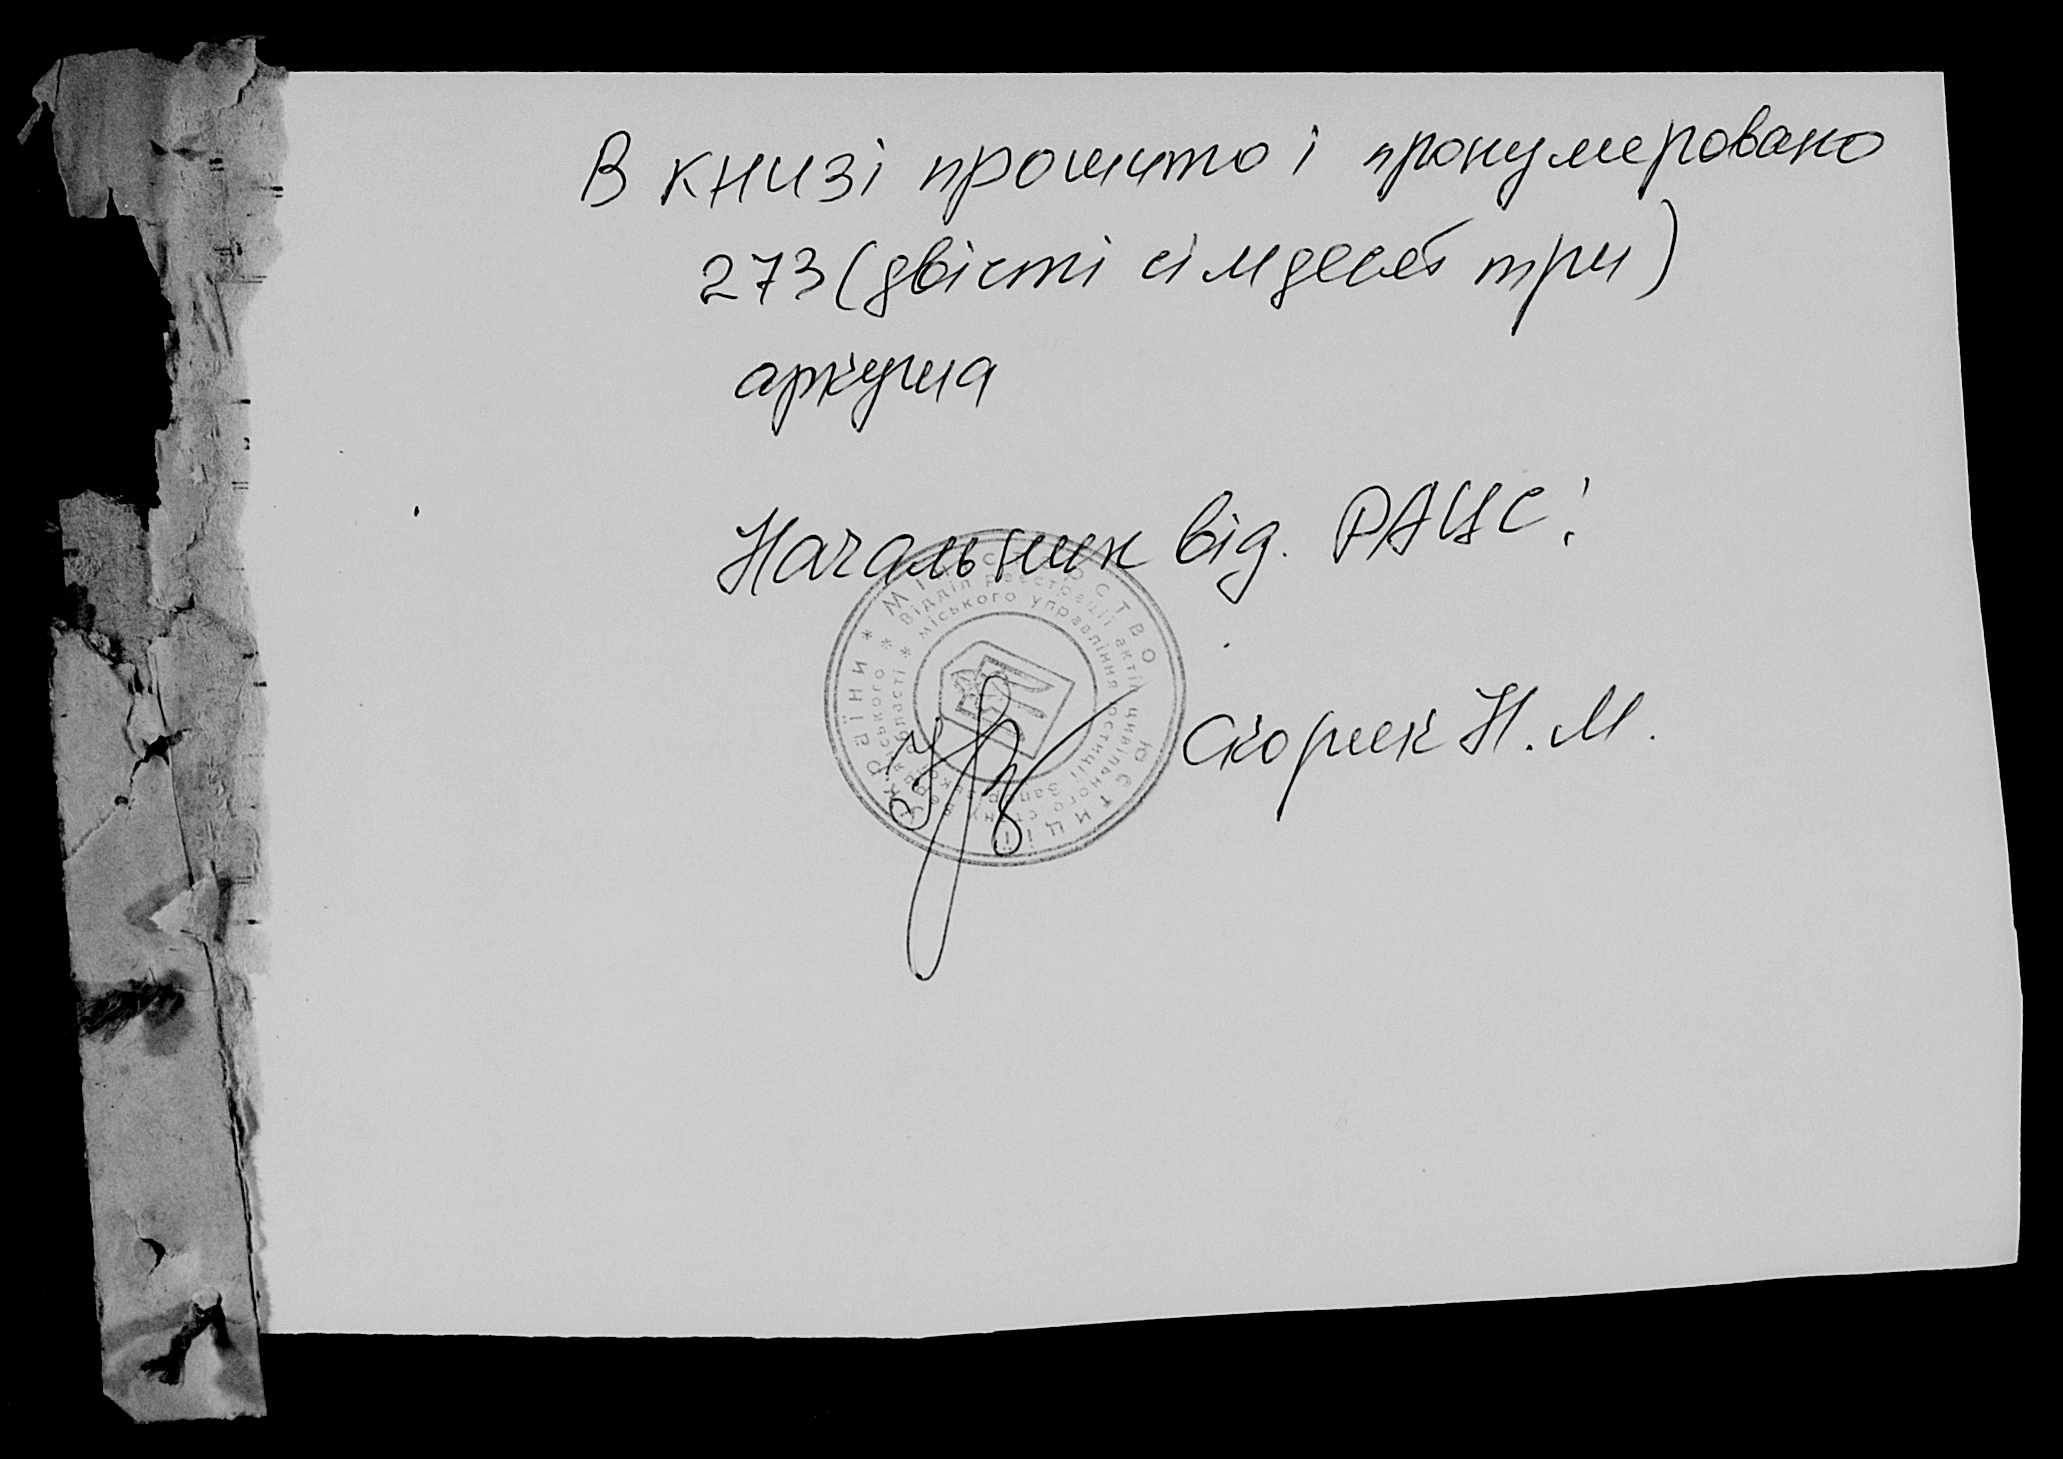 В книзі прошито і пронумеровано
273 (двісті сімдесят три)
аркуша
Начальник від. РАЦС:
Скорик Н. М.
МІНІСТЕРСТВО ЮСТИЦІЇ УКРАЇНИ *
Відділ реєстрації актів цивільного стану *
міського управління юстиції Запорізької області *